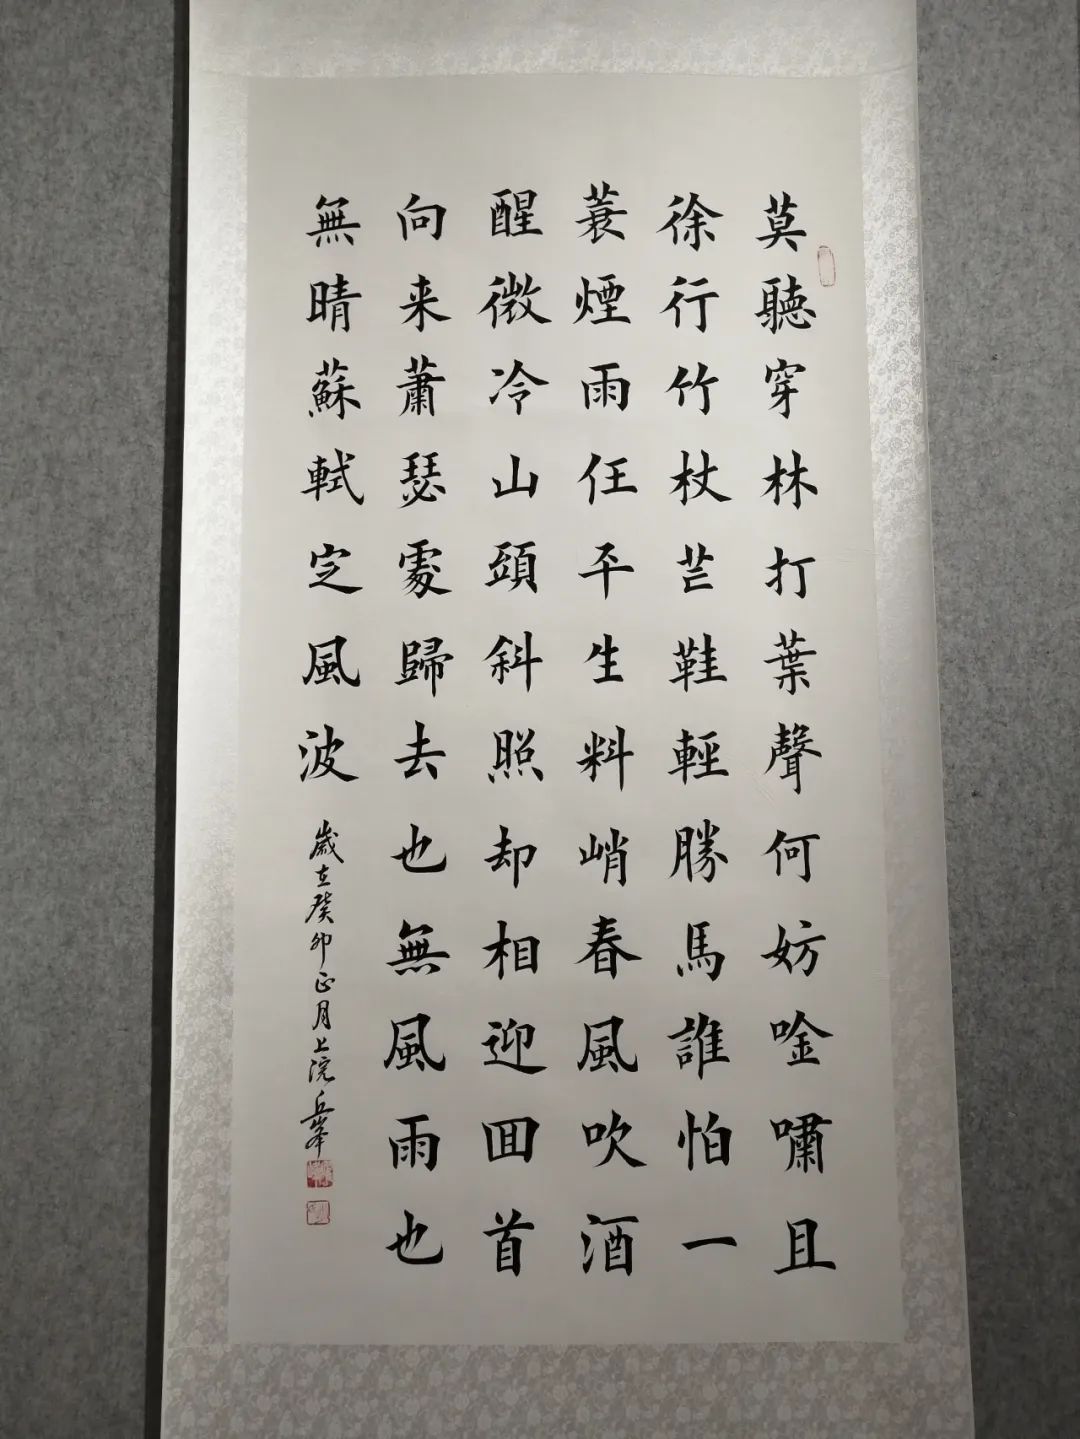 莫聽穿林打葉聲何妨唫嘯且
徐行竹杖芒鞋輕勝馬誰怕一
蓑煙雨任平生料峭春風吹酒
醒微冷山頭斜照却相迎回首
向来蕭瑟處歸去也無風雨也
無晴蘇軾定風波
歲在癸卯正月上浣丘峯